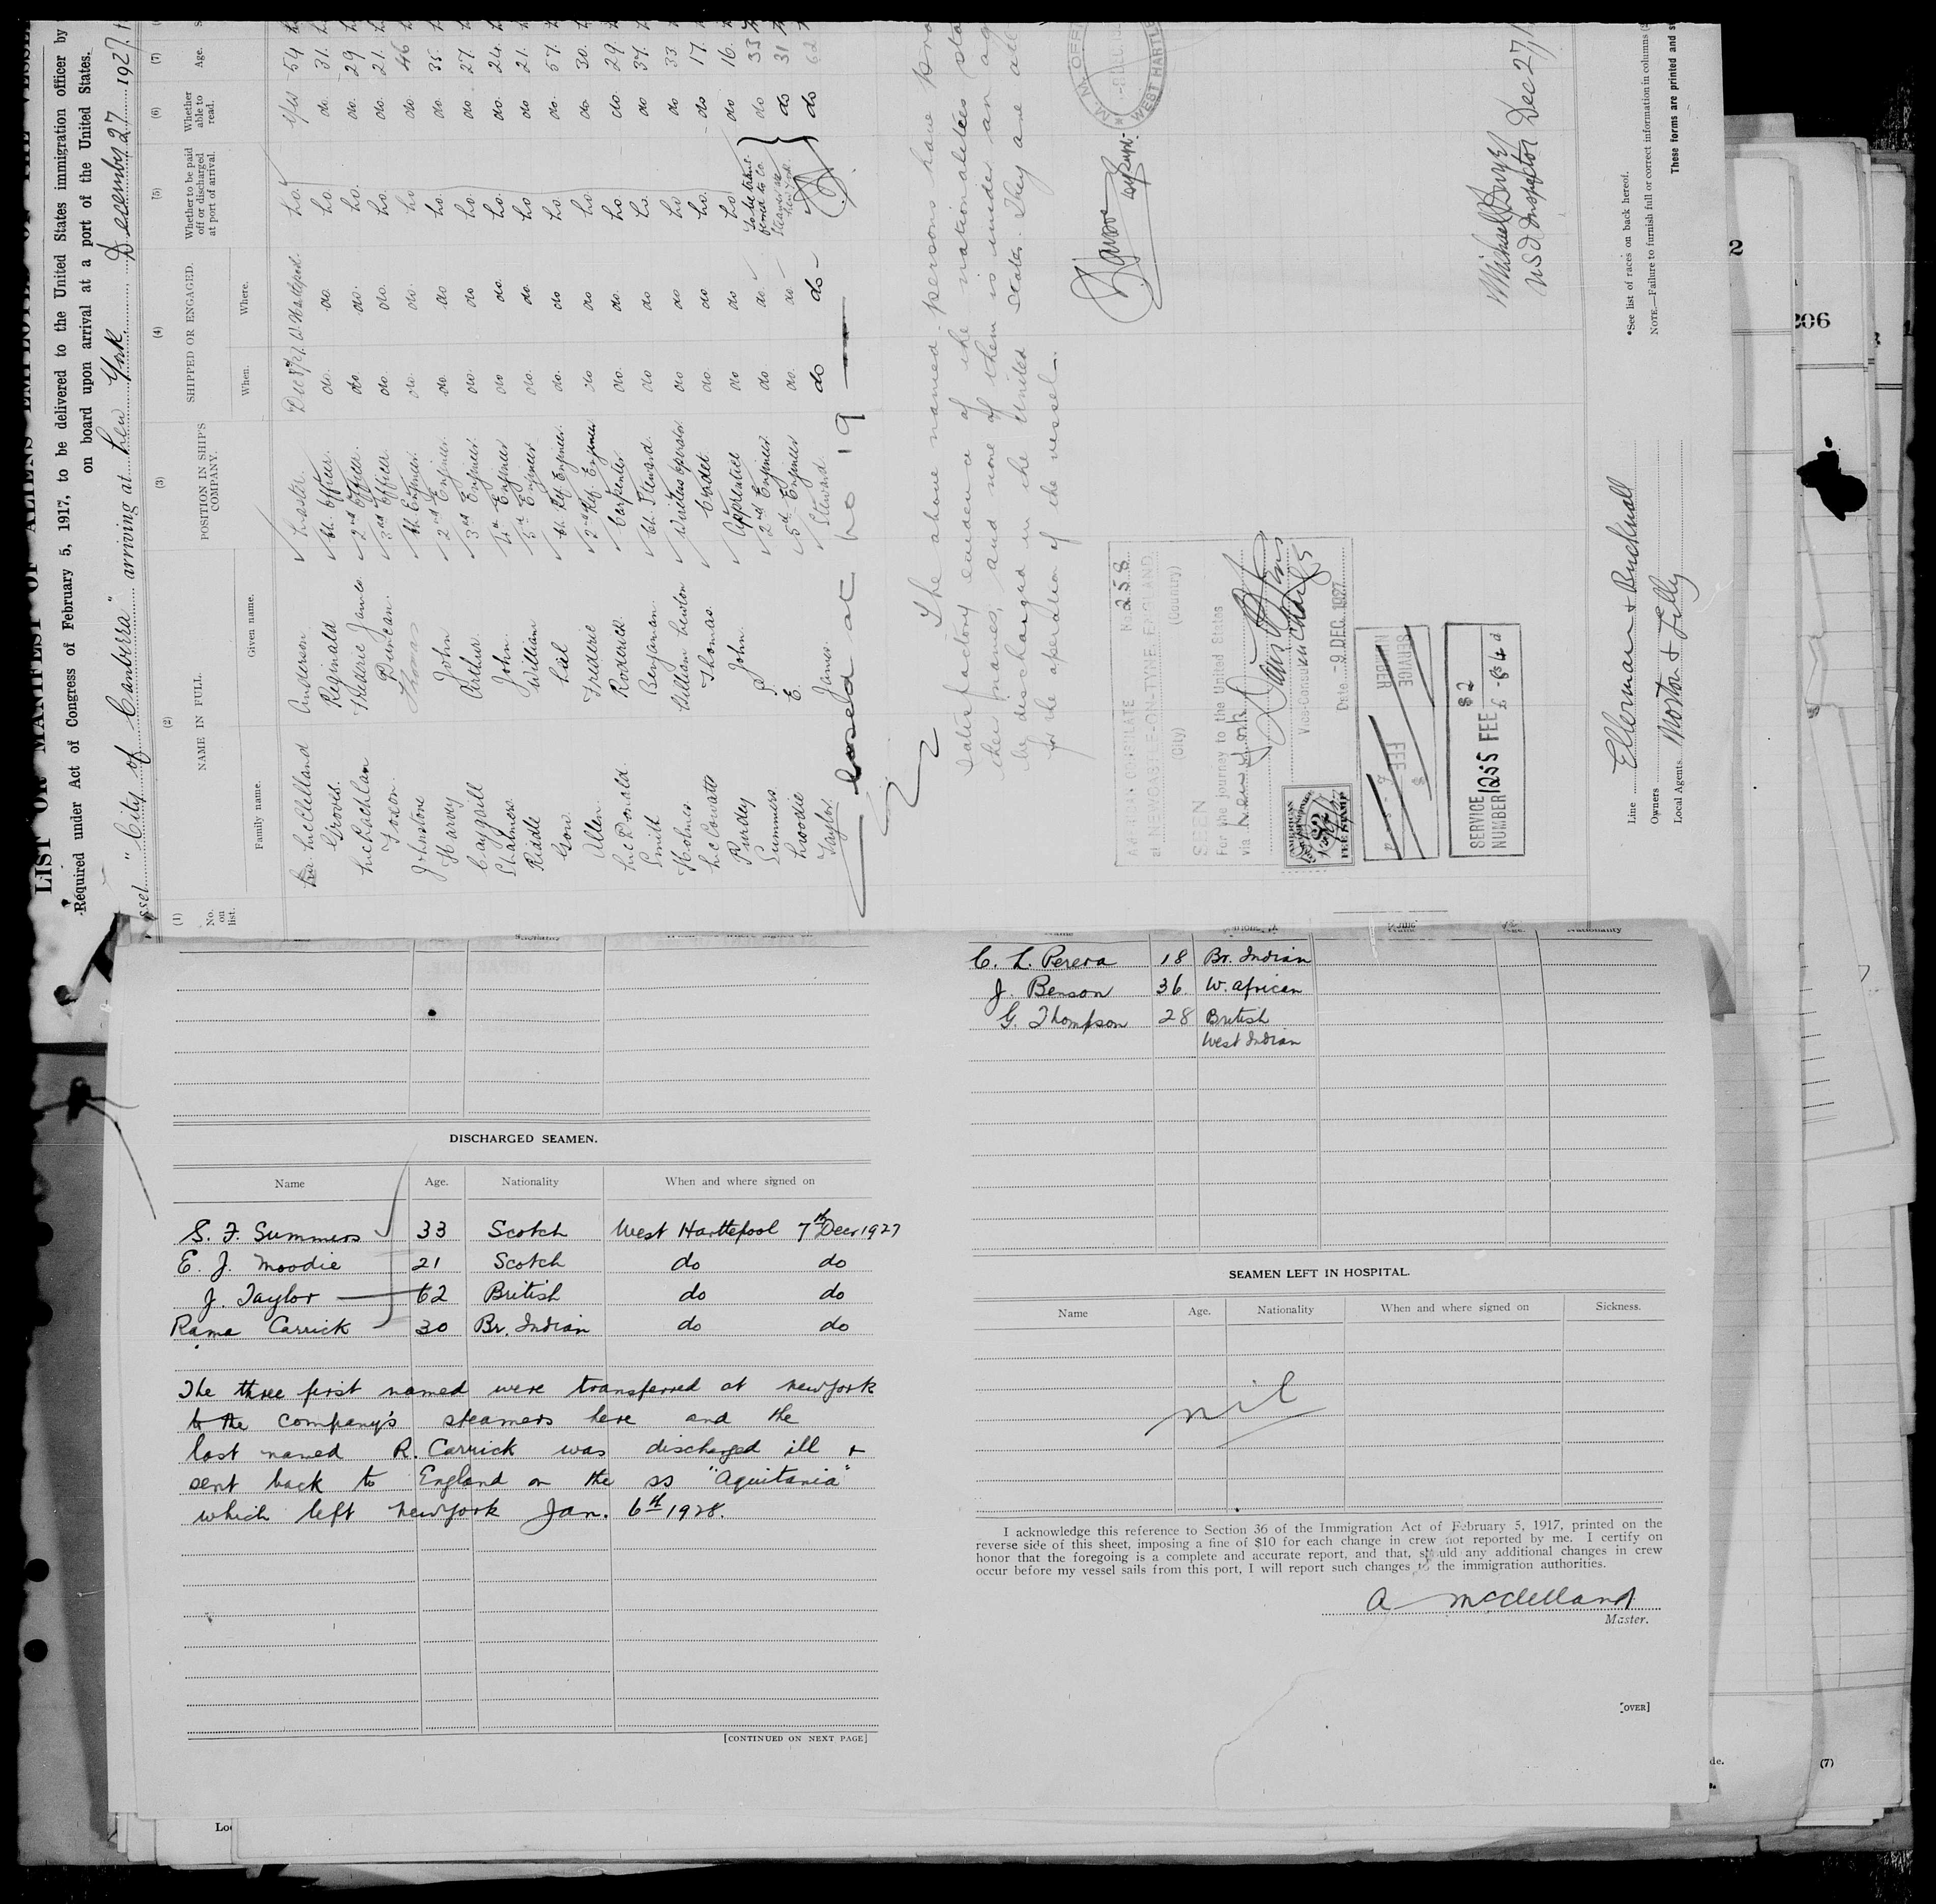 LIST OR MANIFEST OF ALIENS EMPLOYED ON THE VESSEL
Required under Act of Congress of February 5, 1917, to be delivered to the United States immigration officer by
on board upon arrival at a port of the United States.
ssel "City of Canberra" arriving at New York December 27 1927
(1) (2) (3) (4) (5) (6) (7)
No. on list.
NAME IN FULL.
Family name. Given name.
POSITION IN SHIP'S COMPANY.
SHIPPED OR ENGAGED.
When. Where.
Whether to be paid off or discharged at port of arrival.
Whether able to read.
Age.
McClelland Anderson Master Dec 8/27 W. Hartlepool No. 54
Groves. Reginald Ch. Officer. do. do. No. do. 31.
McLachlan Frederic James 2nd Officer. do do. No. do. 29
Foxon Duncan. 3rd Officer. do. do. No. do. 21.
Johnstone Thomas Ch. Engineer. do. do. No do. 46
Harvey John 2nd Engineer. do. do No. do. 35.
Caygill Arthur. 3rd Engineer. do. do No do. 27.
Chalmers. John. 4th Engineer do do. No. do. 24.
Riddle William 5th Engineer do. do. No. do. 21.
Gow. Ch. Ref. Engineer. do. do No. do. 57.
Allen. Frederic 2nd Ref. Engineer do do No. do 30.
McDonald. Roderick. Carpenter do. do No. do. 29
Smith. Benjaman. Ch. Steward. do do No. do 37.
Holmes William Newton Wireless Operator do do No do 33.
McCowatt Thomas. Cadet. do. do. No. do 17.
Purdey John. Apprentice do do No. do. 16.
Summers S. 2nd Engineer. do do. do 33
Moodie E. 5th Engineer do. do do 31
Taylor James. Steward. do do do 62
To be transferred to Co. Steamer at New York.
Closed at No 19
The above named persons have
satisfactory evidence of the nationalities
their names, and none of them is under an
be discharged in the United States. They are all
for the operation of the vessel.
M. M. OFF
-8 DEC. 19
WEST HARTLE
Supt.
AMERICAN CONSULATE No. 258
at NEWCASTLE-ON-TYNE, ENGLAND
(City) (Country)
SEEN
For the journey to the United States
via
Vice Consul in Charge
Date -9 DEC. 1927
AMERICAN
$2
FEE STAMP
SERVICE NUMBER
FEE
SERVICE NUMBER 1255 FEE $2
£ -8-4d
Michael
U S I Inspector Dec 27/
Line Ellerman & Bucknall
Owners
Local Agents. Norton & Lilly
*See list of races on back hereof.
NOTE.—Failure to furnish full or correct information in columns (
These forms are printed and s
C. L. Perera 18 Br. Indian
J. Benson 36. W. African
G. Thompson 28 British
West Indian
DISCHARGED SEAMEN.
Name Age. Nationality When and where signed on
S. F. Summers 33 Scotch West Hartlepool 7th Decr 1927
E. J. Moodie 21 Scotch do do
J. Taylor 62 British do do
Rama Carrick 30 Br. Indian do do
The three first named were transferred at New York
to the Company's steamers here and the
last named R. Carrick was discharged ill &
sent back to England on the ss "Aquitania"
which left New York Jan. 6th 1928.
[CONTINUED ON NEXT PAGE]
SEAMEN LEFT IN HOSPITAL.
Name Age. Nationality When and where signed on Sickness.
nil
I acknowledge this reference to Section 36 of the Immigration Act of February 5, 1917, printed on the
reverse side of this sheet, imposing a fine of $10 for each change in crew not reported by me. I certify on
honor that the foregoing is a complete and accurate report, and that, should any additional changes in crew
occur before my vessel sails from this port, I will report such changes to the immigration authorities.
A McClelland
Master.
[OVER]
2
206
de.
(7)
Lo